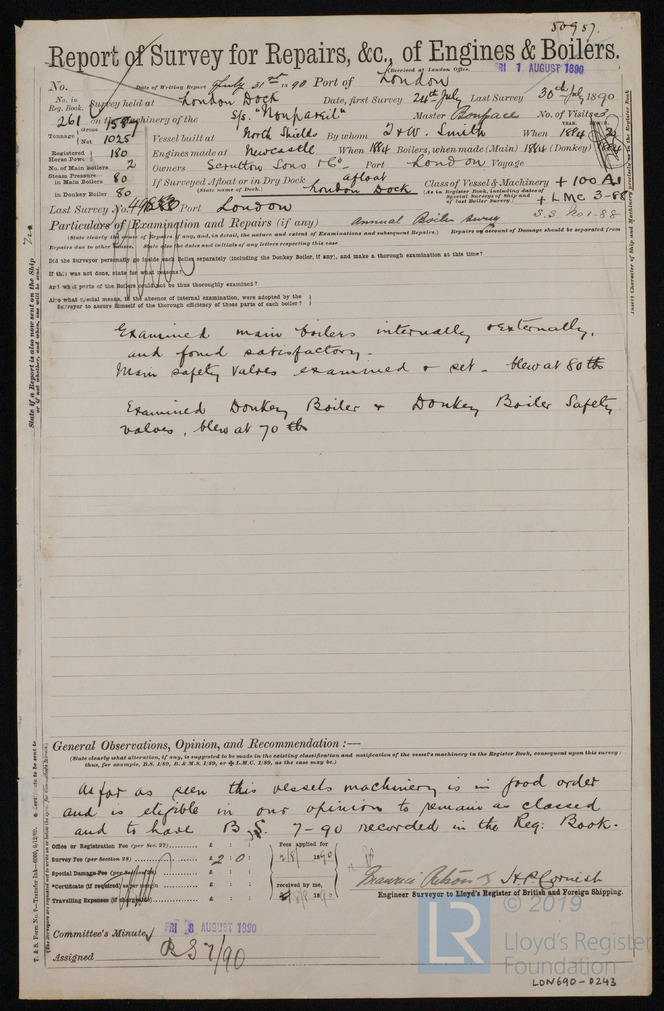 50957.
Report of Survey for Repairs, &c., of Engines & Boilers.
(Received at London Office,
FRI 1 AUGUST 1890
No. Date of Writing Report July 31st 1890 Port of London
No. in Reg. Book. Survey held at London Dock Date, first Survey 24th July Last Survey 30th July 1890
261 on the Machinery of the S/S. "Nonpareil" Master Boniface No. of Visits 3
Tonnage Gross 1587 Net 1025 Vessel built at North Shields By whom T & W. Smith When 1884
YEAR. MONTH.
Registered Horse Power 180 Engines made at Newcastle When 1884 Boilers, when made (Main) 1884 (Donkey) 1884
No. of Main Boilers 2 Owners Scrutton Sons & Co. Port London Voyage
Steam Pressure in Main Boilers 80 If Surveyed Afloat or in Dry Dock afloat Class of Vessel & Machinery + 100 A1
in Donkey Boiler 80 (State name of Dock.) London Dock (As in Register Book, including dates of Special Surveys of Ship and of last Boiler Survey.) + LMC 3-88
Last Survey No. Port London S.S. No. 1-88
Particulars of Examination and Repairs (if any) Annual Boiler Survey
(State clearly the cause of Repairs if any, and, in detail, the nature and extent of Examinations and subsequent Repairs.) Repairs on account of Damage should be separated from
Repairs due to other causes. State also the dates and initials of any letters respecting this case
Did the Surveyor personally go inside each Boiler separately (including the Donkey Boiler, if any), and make a thorough examination at this time?
If this was not done, state for what reasons?
And what parts of the Boilers could not be thoroughly examined?
Also what special means, in the absence of internal examination, were adopted by the
Surveyor to assure himself of the thorough efficiency of those parts of each boiler?
Examined main boilers internally & externally,
and found satisfactory.
Main safety valves examined & set - blew at 80 lbs
Examined Donkey Boiler & Donkey Boiler Safety
valves, blew at 70 lbs
General Observations, Opinion, and Recommendation :—
(State clearly what alteration, if any, is suggested to be made in the existing classification and notification of the vessel's machinery in the Register Book, consequent upon this survey:
thus, for example, B.S. 1/89, B. & M.S. 1/89, or + L.M.C. 1/89, as the case may be.)
As far as seen this vessels machinery is in good order
and is eligible in our opinion to remain as classed
and to have B.S. 7-90 recorded in the Reg: Book.
Office or Registration Fee (per Sec. 27) £ : : Fees applied for
Survey Fee (per Section 28) £ 2 : 0 : 2/8/ 1890
Special Damage Fee (per Section 28) £ : :
*Certificate (if required) as per margin £ : : received by me,
Travelling Expenses (if chargeable) £ : : 1890
H P Cornish
Engineer Surveyor to Lloyd's Register of British and Foreign Shipping.
Committee's Minute FRI 8 AUGUST 1890
Assigned BS 7/90
State if a Report is also now sent on the Ship
or if not whether, and when, one will be sent.
Insert Character of Ship and Machinery precisely as in the Register Book
T. & S. Form No. 7—Transfer Ink—6000, 9/12/89.
© 2019
LR
Lloyd's Register
Foundation
LDN690-0243